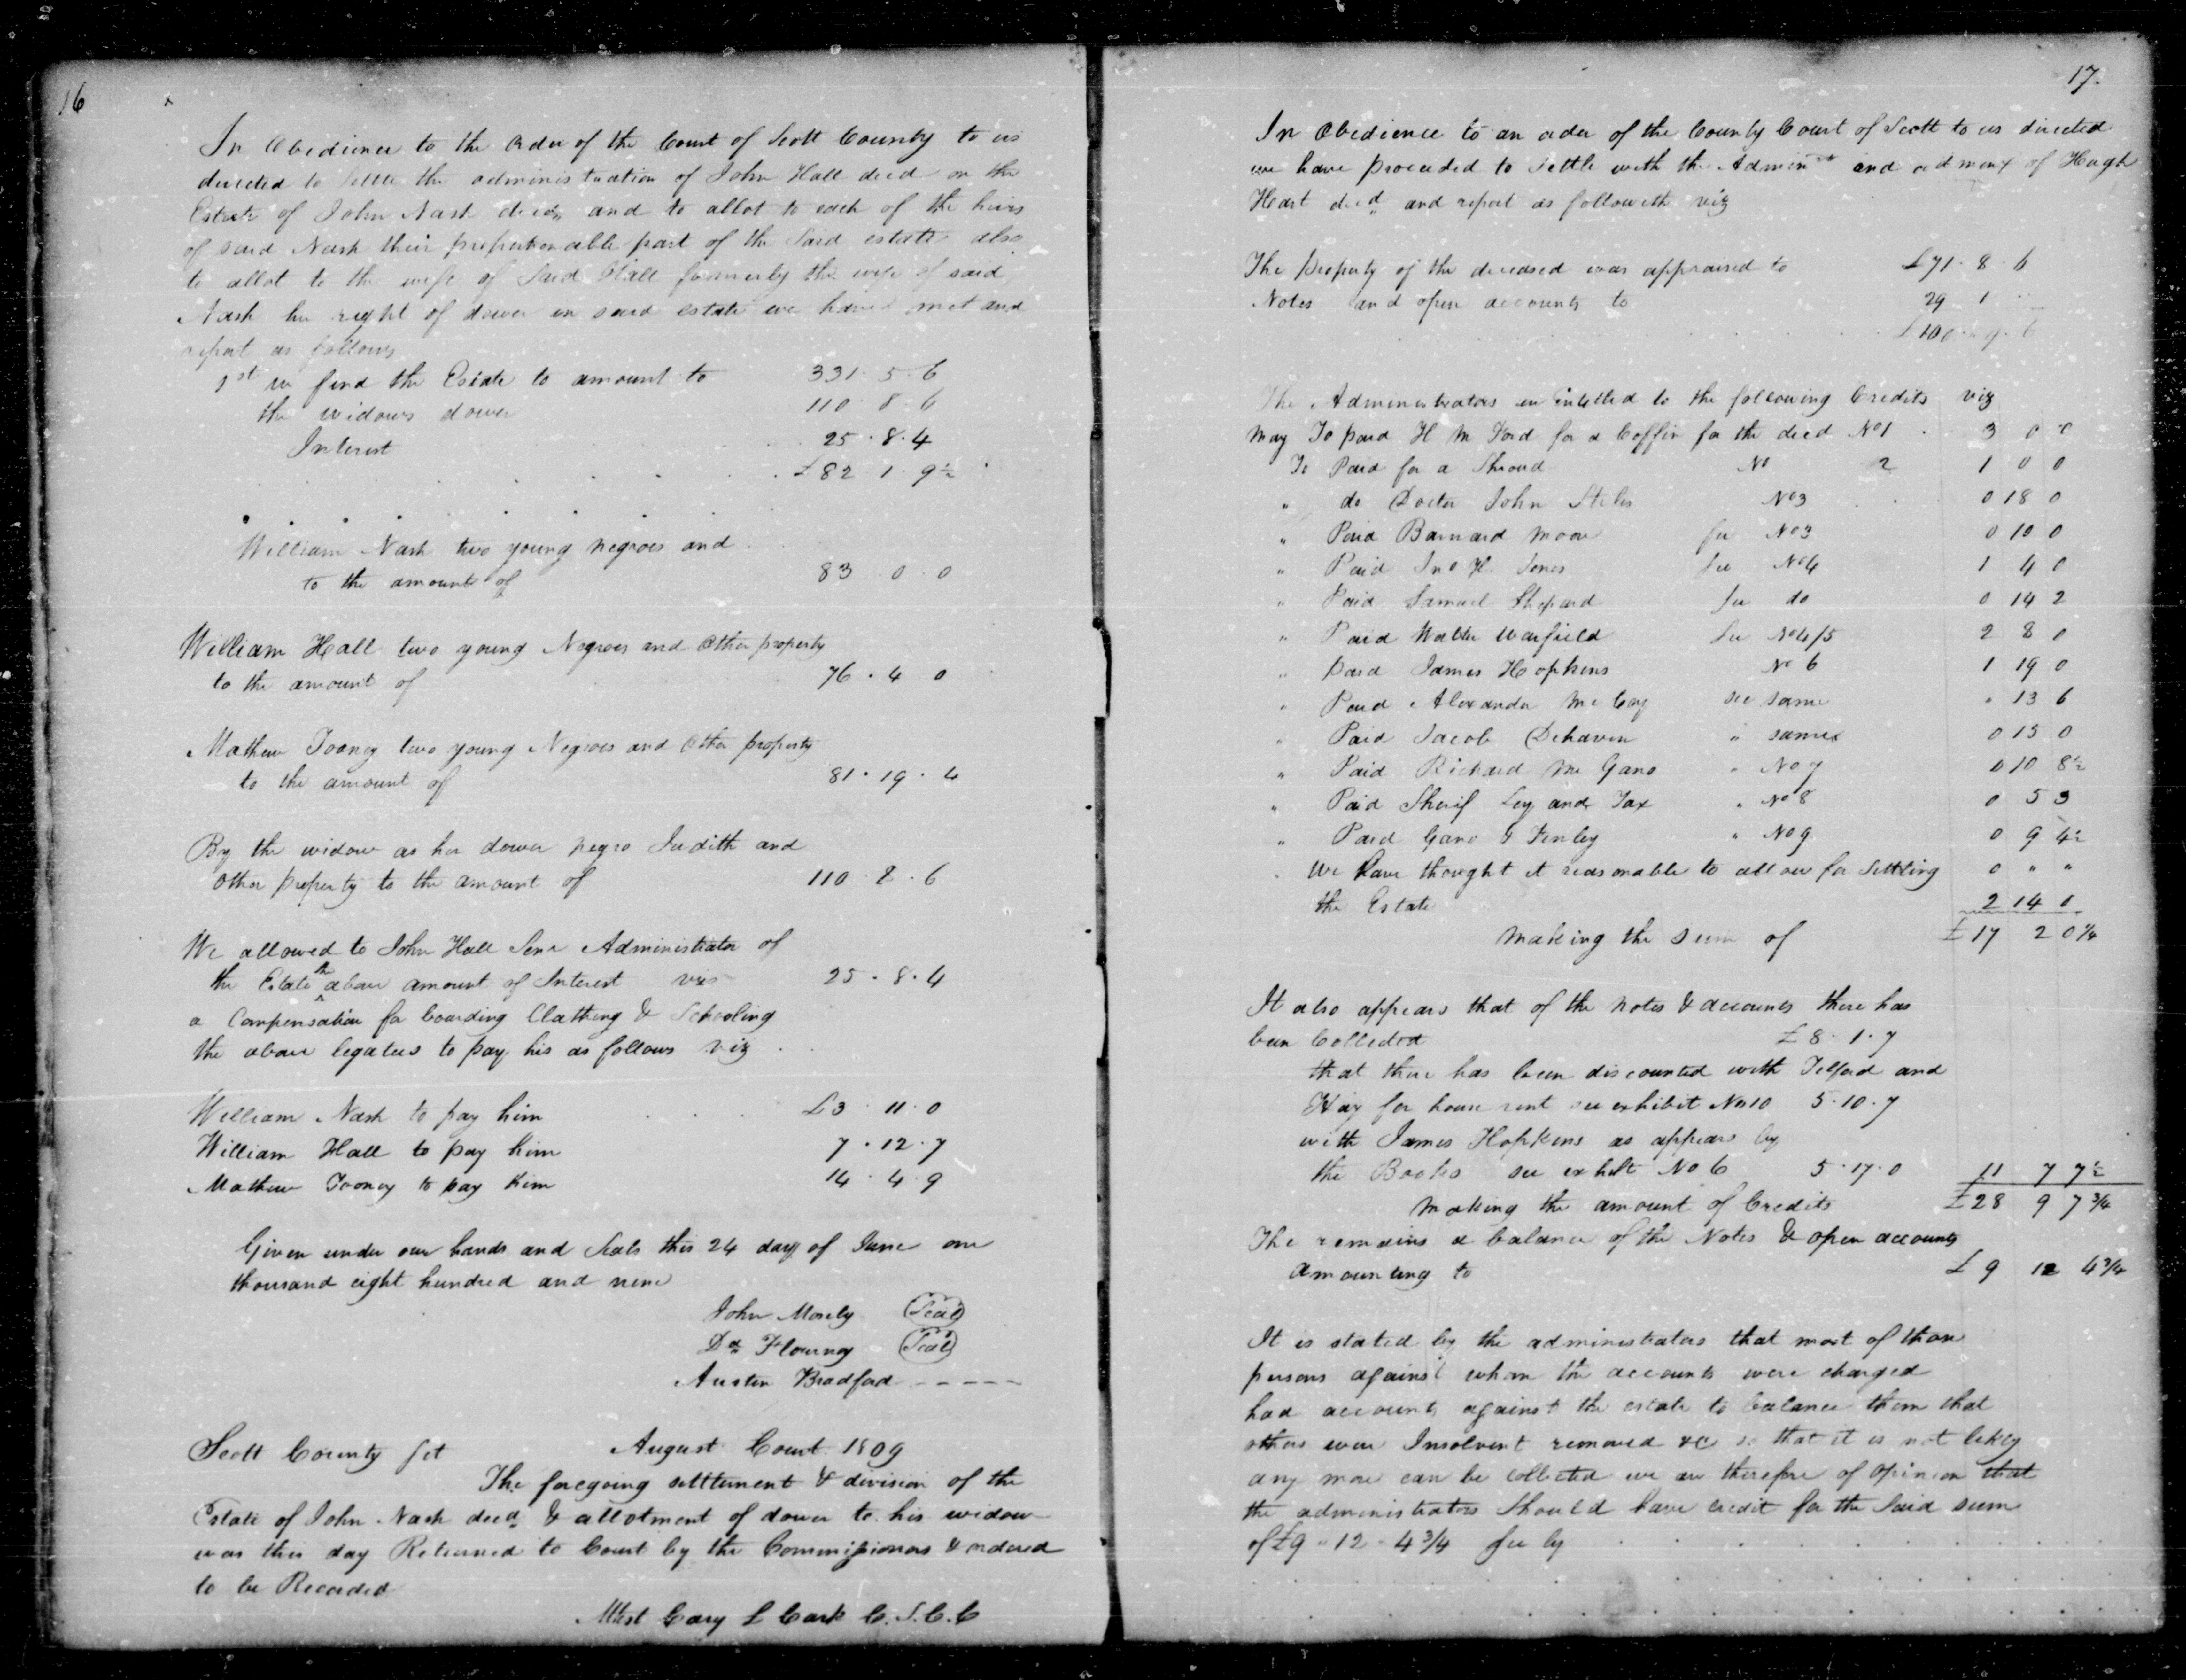 16
In Obedience to the Order of the Court of Scott County to us
directed to Settle the administration of John Hall decd on the
Estate of John Nash decd and to allot to each of the heirs
of said Nash their proportionable part of the Said estate also
to allot to the wife of Said Hall formerly the wife of said
Nash her right of dower in said estate we have met and
report as follows
1st we find the Estate to amount to 331 . 5 . 6
the widows dower 110 . 8 . 6
Interest 25 . 8 . 4
£82 1 . 9½
William Nash two young negroes and
to the amount of 83 . 0 . 0
William Hall two young Negroes and Other property
to the amount of 76 . 4 0
Mathew Tooney two young Negroes and Other property
to the amount of 81 . 19 . 4
By the widow as her dower negro Judith and
other property to the amount of 110 . 8 . 6
We allowed to John Hall Senr Administrator of
the Estate the above amount of Interest vis 25 . 8 . 4
a Compensation for boarding Clathing & Schooling
the above legatees to pay his as follows viz
William Nash to pay him £3 . 11 . 0
William Hall to pay him 7 . 12 . 7
Mathew Tooney to pay him 14 . 4 . 9
Given under our hands and Seals this 24 day of June one
thousand eight hundred and nine
John Mosely (Seal)
Dd Flournoy (Seal)
Austin Bradford - - - - -
Scott County Sct August Court 1809
The foregoing settlement & division of the
Estate of John Nash decd & allotment of dower to his widow
was this day Returned to Court by the Commissioners & ordered
to be Recorded
Attest Cary L Clark C. S. C. C
17.
In Obedience to an order of the County Court of Scott to us directed
we have proceeded to settle with the Admin and admnx of Hugh
Heart decd and report as followeth viz
The Property of the deceased was appraised to £71 . 8 . 6
Notes and open accounts to 29 1
£100 . 9 . 6
The Administrators are Entitled to the following Credits viz
May To paid H M Ford for a Coffin for the decd No 1 3 0 0
To Paid for a Shroud No 2 1 0 0
" do Doctor John Stiles No 3 0 18 0
" Paid Barnard Moore for No 3 0 10 0
" Paid Jno H. Jones See No 4 1 4 0
" Paid Samuel Shepard See do 0 14 2
" Paid Walter Warfield See No 4/5 2 8 0
" Paid James Hopkins No 6 1 19 0
" Paid Alexander McCoy see same " 13 6
" Paid Jacob Dehaven " same 0 15 0
" Paid Richard M Gano " No 7 0 10 8½
" Paid Sherif Levy and Tax " No 8 0 5 3
" Paid Gano & Finley " No 9 0 9 4½
We have thought it reasonable to allow for Settling 0 " "
the Estate 2 14 0
Making the Sum of £17 2 0¼
It also appears that of the notes & accounts there has
been Collected £8 . 1 . 7
that there has been discounted with Telford and
Hay for house rent see exhibit No 10 5 . 10 . 7
with James Hopkins as appears by
the Books see exhibt No 6 5 . 17 . 0 11 7 7½
Making the amount of Credits £28 9 7¾
The remains a balance of the Notes & open accounts
amounting to £9 12 4¾
It is stated by the administrators that most of those
persons against whom the accounts were charged
had accounts against the estate to balance them that
others were Insolvent removed &c so that it is not likely
any more can be collected we are therefore of Opinion that
the administrators Should have credit for the Said sum
of £9 " 12 . 4¾